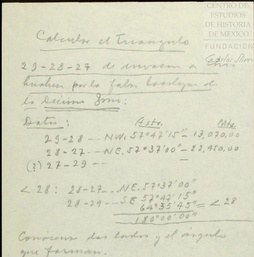 CENTRO DE
ESTUDIOS
DE HISTORIA
DE MÉXICO
FUNDACIÓN
Calcular el Triangulo
29-28-27 de
por la falsa
la
Datos:
29-28 -- NW. 57°47'15" - 13,070.00
28-27 -- NE. 57°37'00" - 22,450.00
(?) 27-29 --
∠28: 28-27 -- NE. 57°37'00"
28-29 -- SE 57°47'15"
64°35'45" = ∠28
180°00'00"
Conocemos dos lados y el ángulo
que forman.